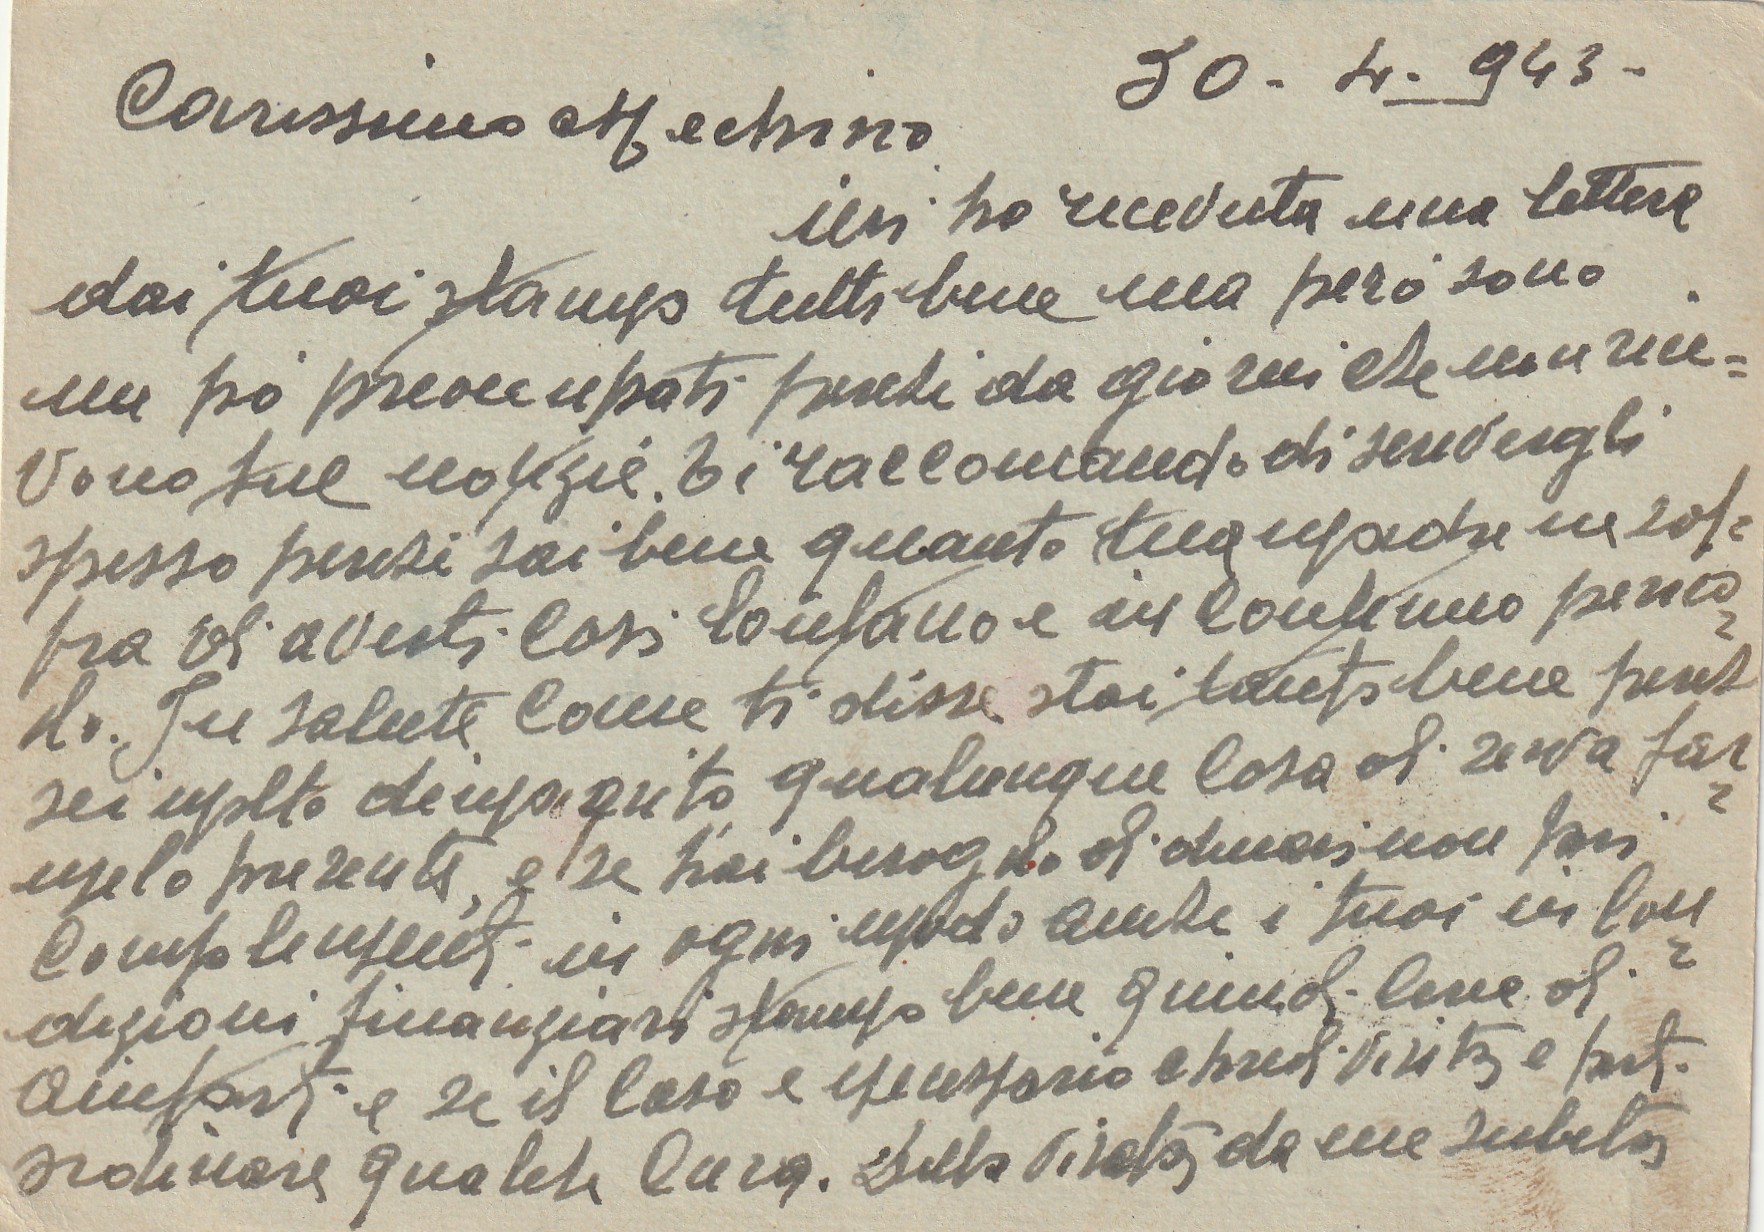 30 - 4 - 943 -
Carissimo Mechino
ieri ho ricevuta una lettera
dai tuoi stanno tutti bene ma però sono
un pò preoccupati perchè da giorni che non rice=
vono tue notizie. Ti raccomando di scrivergli
spesso perchè sai bene quanto tua madre ne sof=
fra di averti così lontano e in continuo perico=
lo. In salute come ti disse stai tanto bene perchè
sei molto dimagrito, qualunque cosa di serva far=
melo presente, e se hai bisogno di denari non fari
complimenti in ogni modo anche i tuoi in con=
dizioni finanziari stanno bene quindi cerca di
aiutarti e se il caso e necessario chiedi visita e farti
ordinare qualche cura. Della visita da me subita